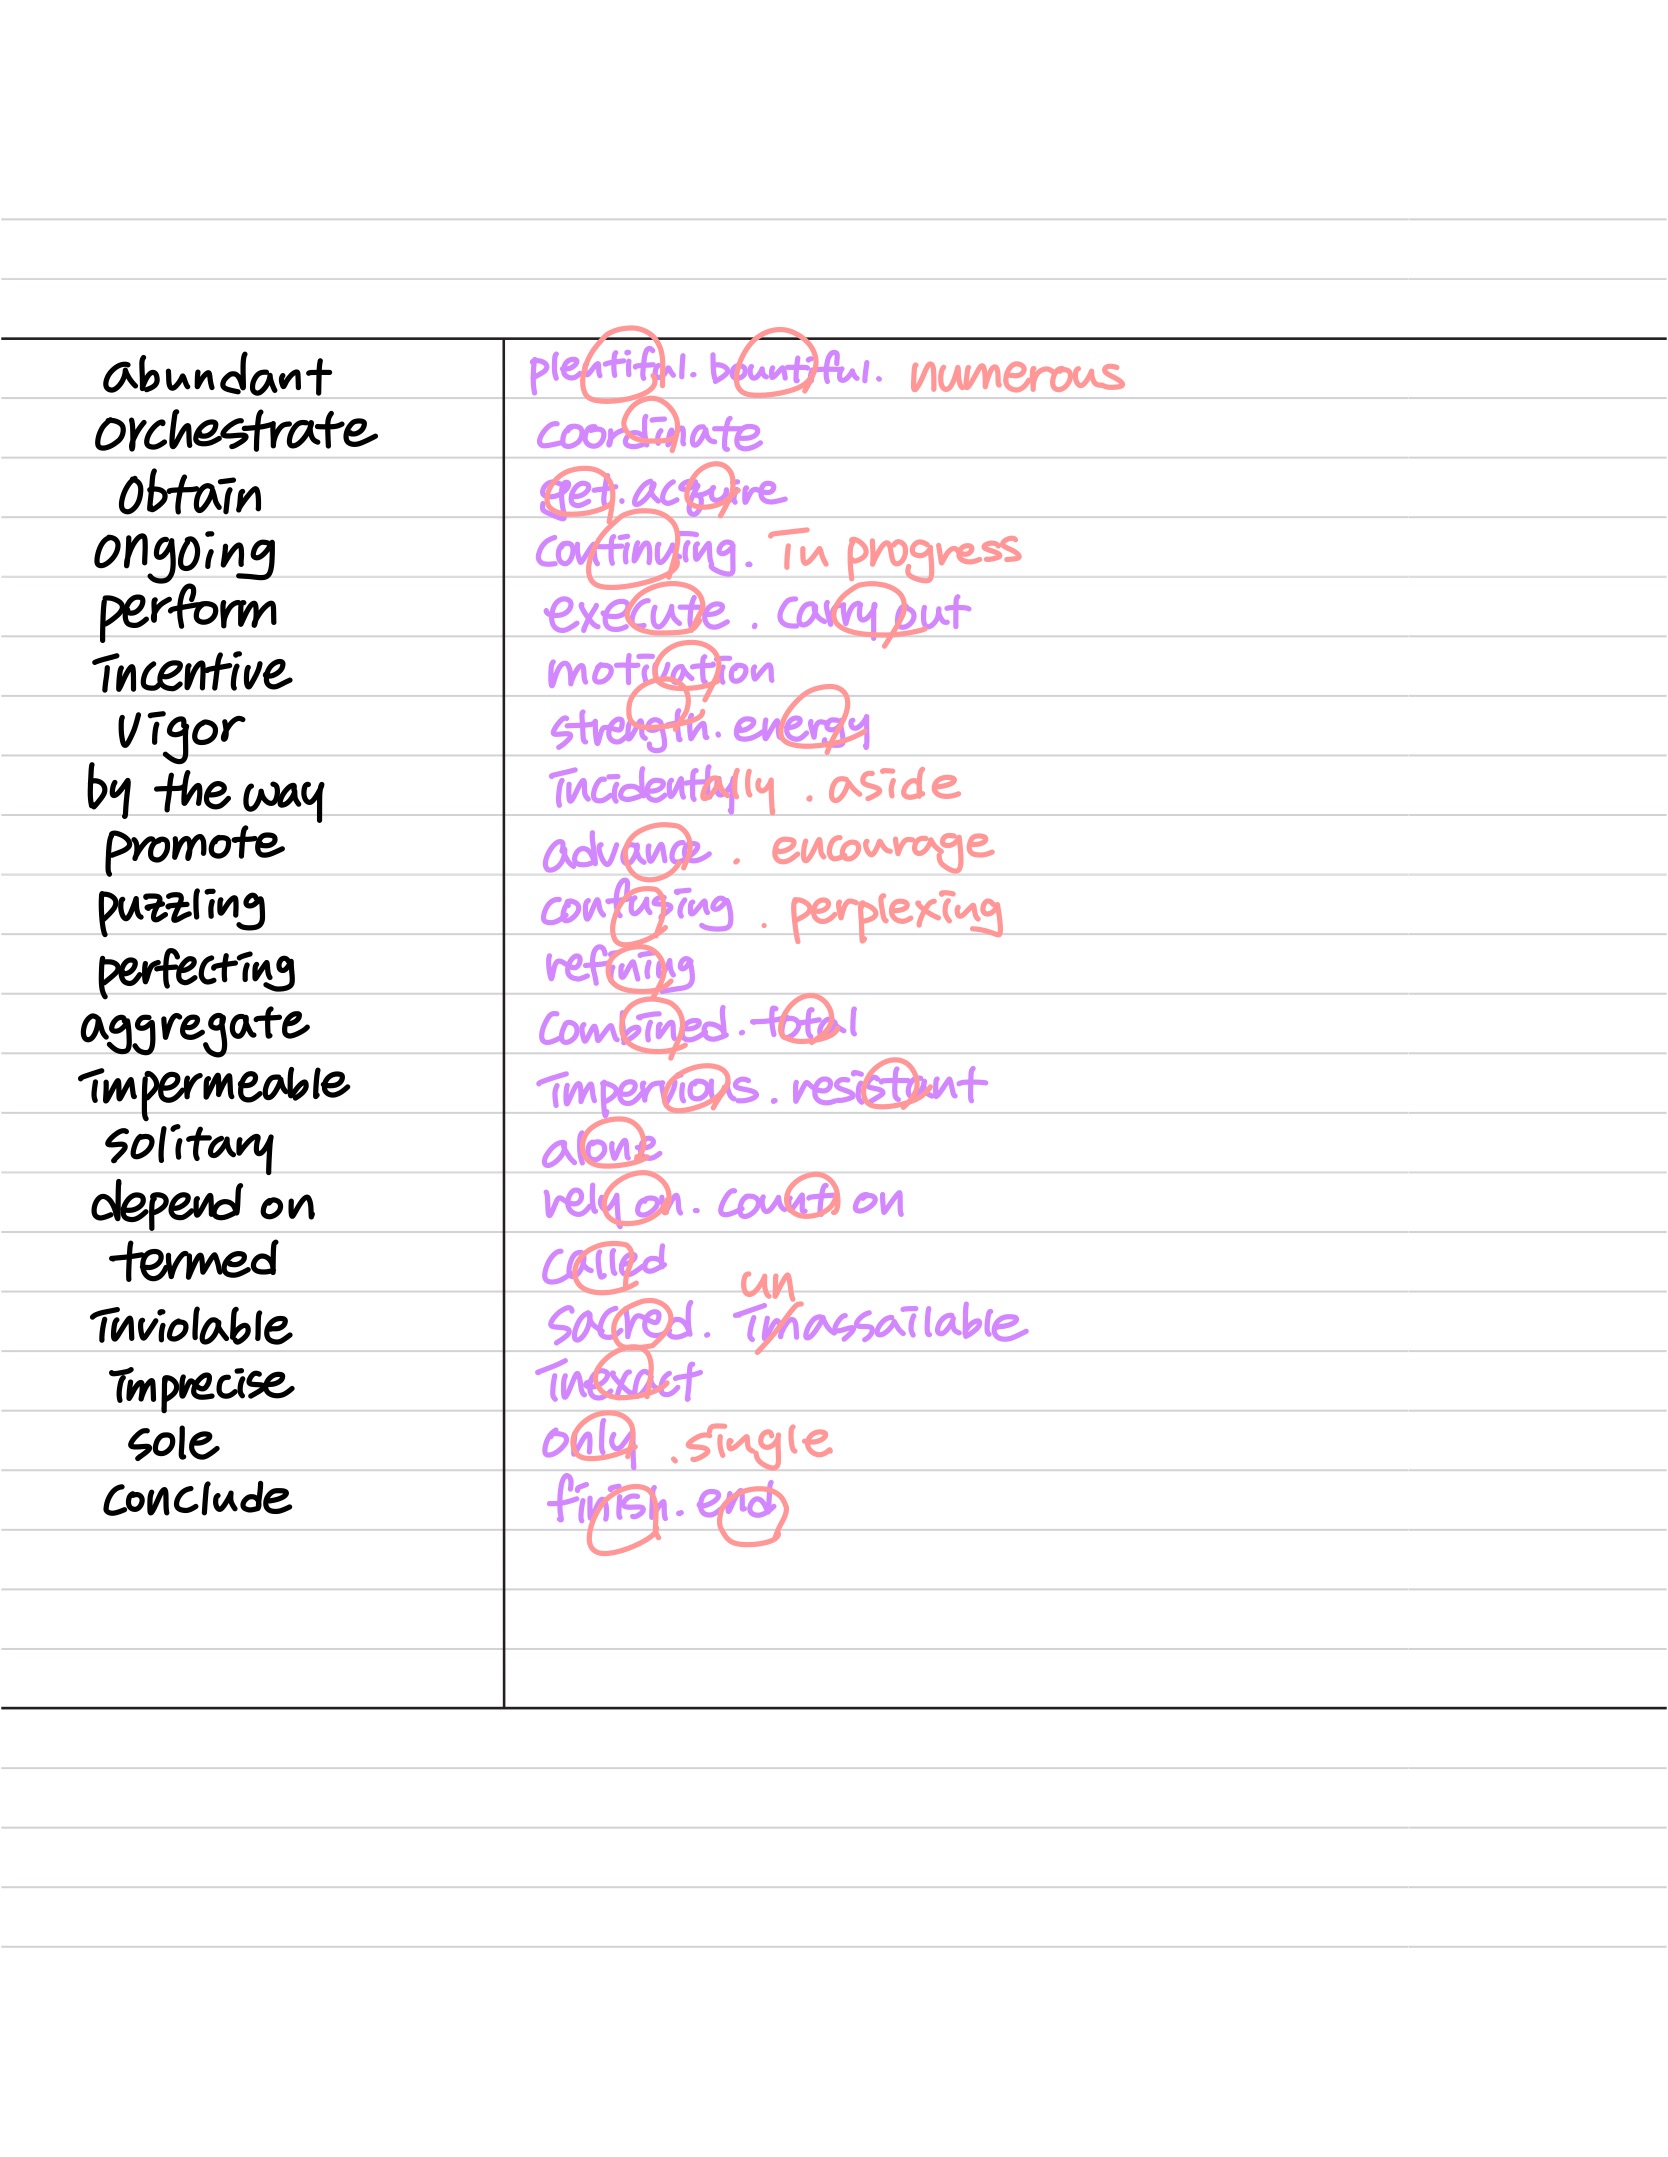 abundant plentiful. bountiful. numerous
orchestrate coordinate
obtain get. acquire
ongoing continuing. in progress
perform execute. carry out
incentive motivation
vigor strength. energy
by the way incidentally. aside
promote advance. encourage
puzzling confusing. perplexing
perfecting refining
aggregate combined. total
impermeable impervious. resistant
solitary alone
depend on rely on. count on
termed called
un
inviolable sacred. imassailable
imprecise inexact
sole only. single
conclude finish. end